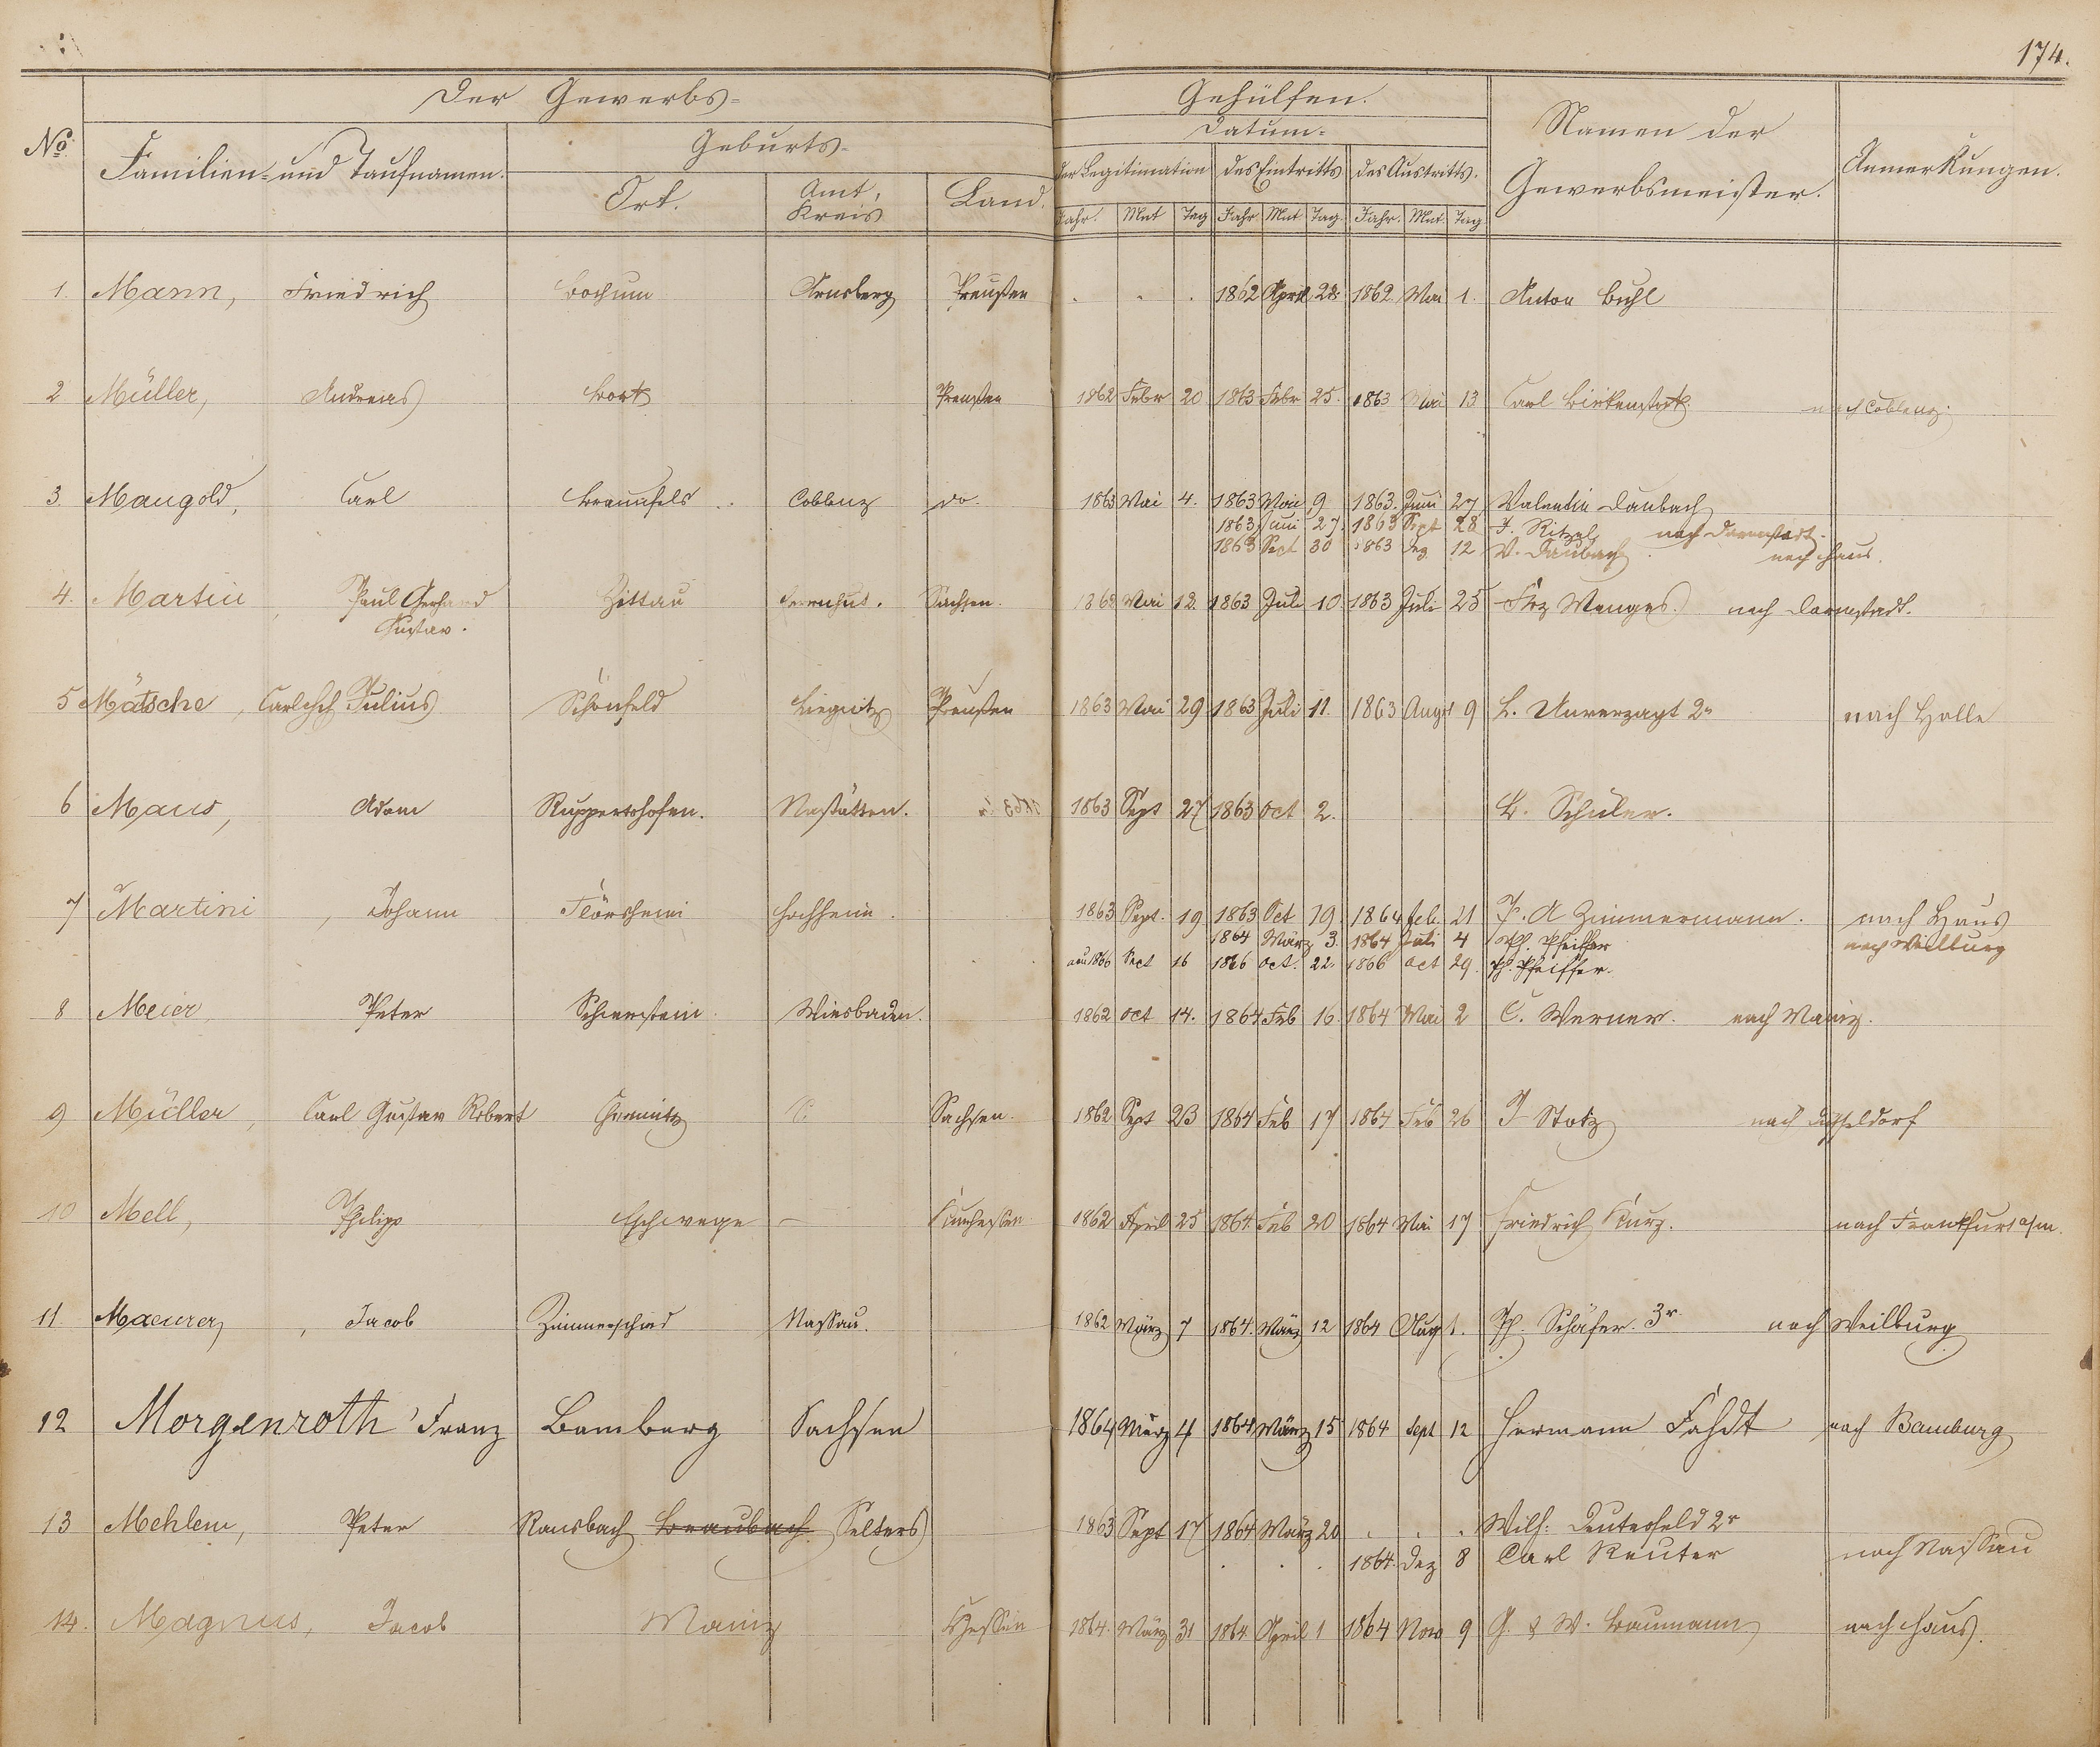 174.
Der Gewerbs-
Gehülfen.
No.
Familien- und Taufnamen.
Geburts-
Datum-
Namen der Gewerbsmeister.
Anmerkungen.
Ort.
Amt, Kreis
Land.
der Legitimation
des Eintritts
des Austritts.
Jahr. Mnt Tag Jahr Mnt Tag. Jahr. Mnt. Tag
1. Mann, Friedrich Bochum Arnsberg Preußen 1862 April 28. 1862 Mai 1. Anton Buhl
2 Müller, Andreas Preußen 1862 Febr 20 1863 Febr 25. 1863 Mai 13 Carl Birkenstock nach Coblenz.
3. Mangold, Carl Braunfels Coblenz do. 1863 Mai 4. 1863 Mai 9 1863. Juni 27 Valentin Daubach
1863 Juni 27. 1863 Sept 28 F. Ritzel nach Darmstadt.
1863 Sept 30 1863 Dez 12 V. Daubach nach Haus.
4. Martin, Paul Gerhard Zittau Herrnhut. Sachsen. 1862 Mai 12. 1863 Juli 10. 1863 Juli 25 Frz Wenges. nach Darmstadt.
Gustav.
5 Mätsche, Carl Julius Schönfeld Liegnitz Preußen 1863 Mai 29. 1863 Juli 11. 1863 Augst 9 L. Unverzagt 2r nach Halle
6 Maus, Adam Ruppertshofen. Nastätten. 1863 Sept 27 1863 Oct 2. L. Schüler.
7 Martini, Johann Flörsheim Hochheim. 1863 Sept. 19 1863 Oct 19. 1864 Feb. 21 P. A Zimmermann. nach Haus
1864 März 3. 1864 Juli 4 Ph. Pfeiffer nach Weilburg
1866 Sept 16 1866 Oct. 22. 1866 Oct 29. Ph. Pfeiffer.
8 Meier, Peter Schierstein Wiesbaden. 1862 Oct 14. 1864 Feb 16. 1864 Mai 2 C. Werner. nach Mainz.
9 Müller, Carl Gustav Robert Chemnitz C Sachsen. 1862 Sept 23 1864 Feb 17 1864 Feb 26 J Stotz nach Düsseldorf
10 Mell, Philipp Eschwege – Kurhessen 1862 April 25 1864. Feb 20 1864 Mai 17 Friedrich Kurz. nach Frankfurt a/m.
11. Maeurer, Jacob Zimmerschied Nassau. 1862 März 7 1864. März 12 1864 Aug 1. Ph. Schäfer. 3r. nach Weilburg
12 Morgenroth, Franz Bamberg Sachsen 1864 März 4 1864 März 15 1864 Sept 12 Hermann Fahdt nach Bamburg
13 Mehlem, Peter Ransbach Braubach. Selters 1863 Sept 17 1864 März 20 Wilh. Deuterfeld 2r
1864. Dez 8 Carl Reuter nach Nassau
14. Magnus, Jacob Mainz Hessen 1864. März 31 1864. April 1 1864 Nov 9 G. & W. Baumann nach Haus.